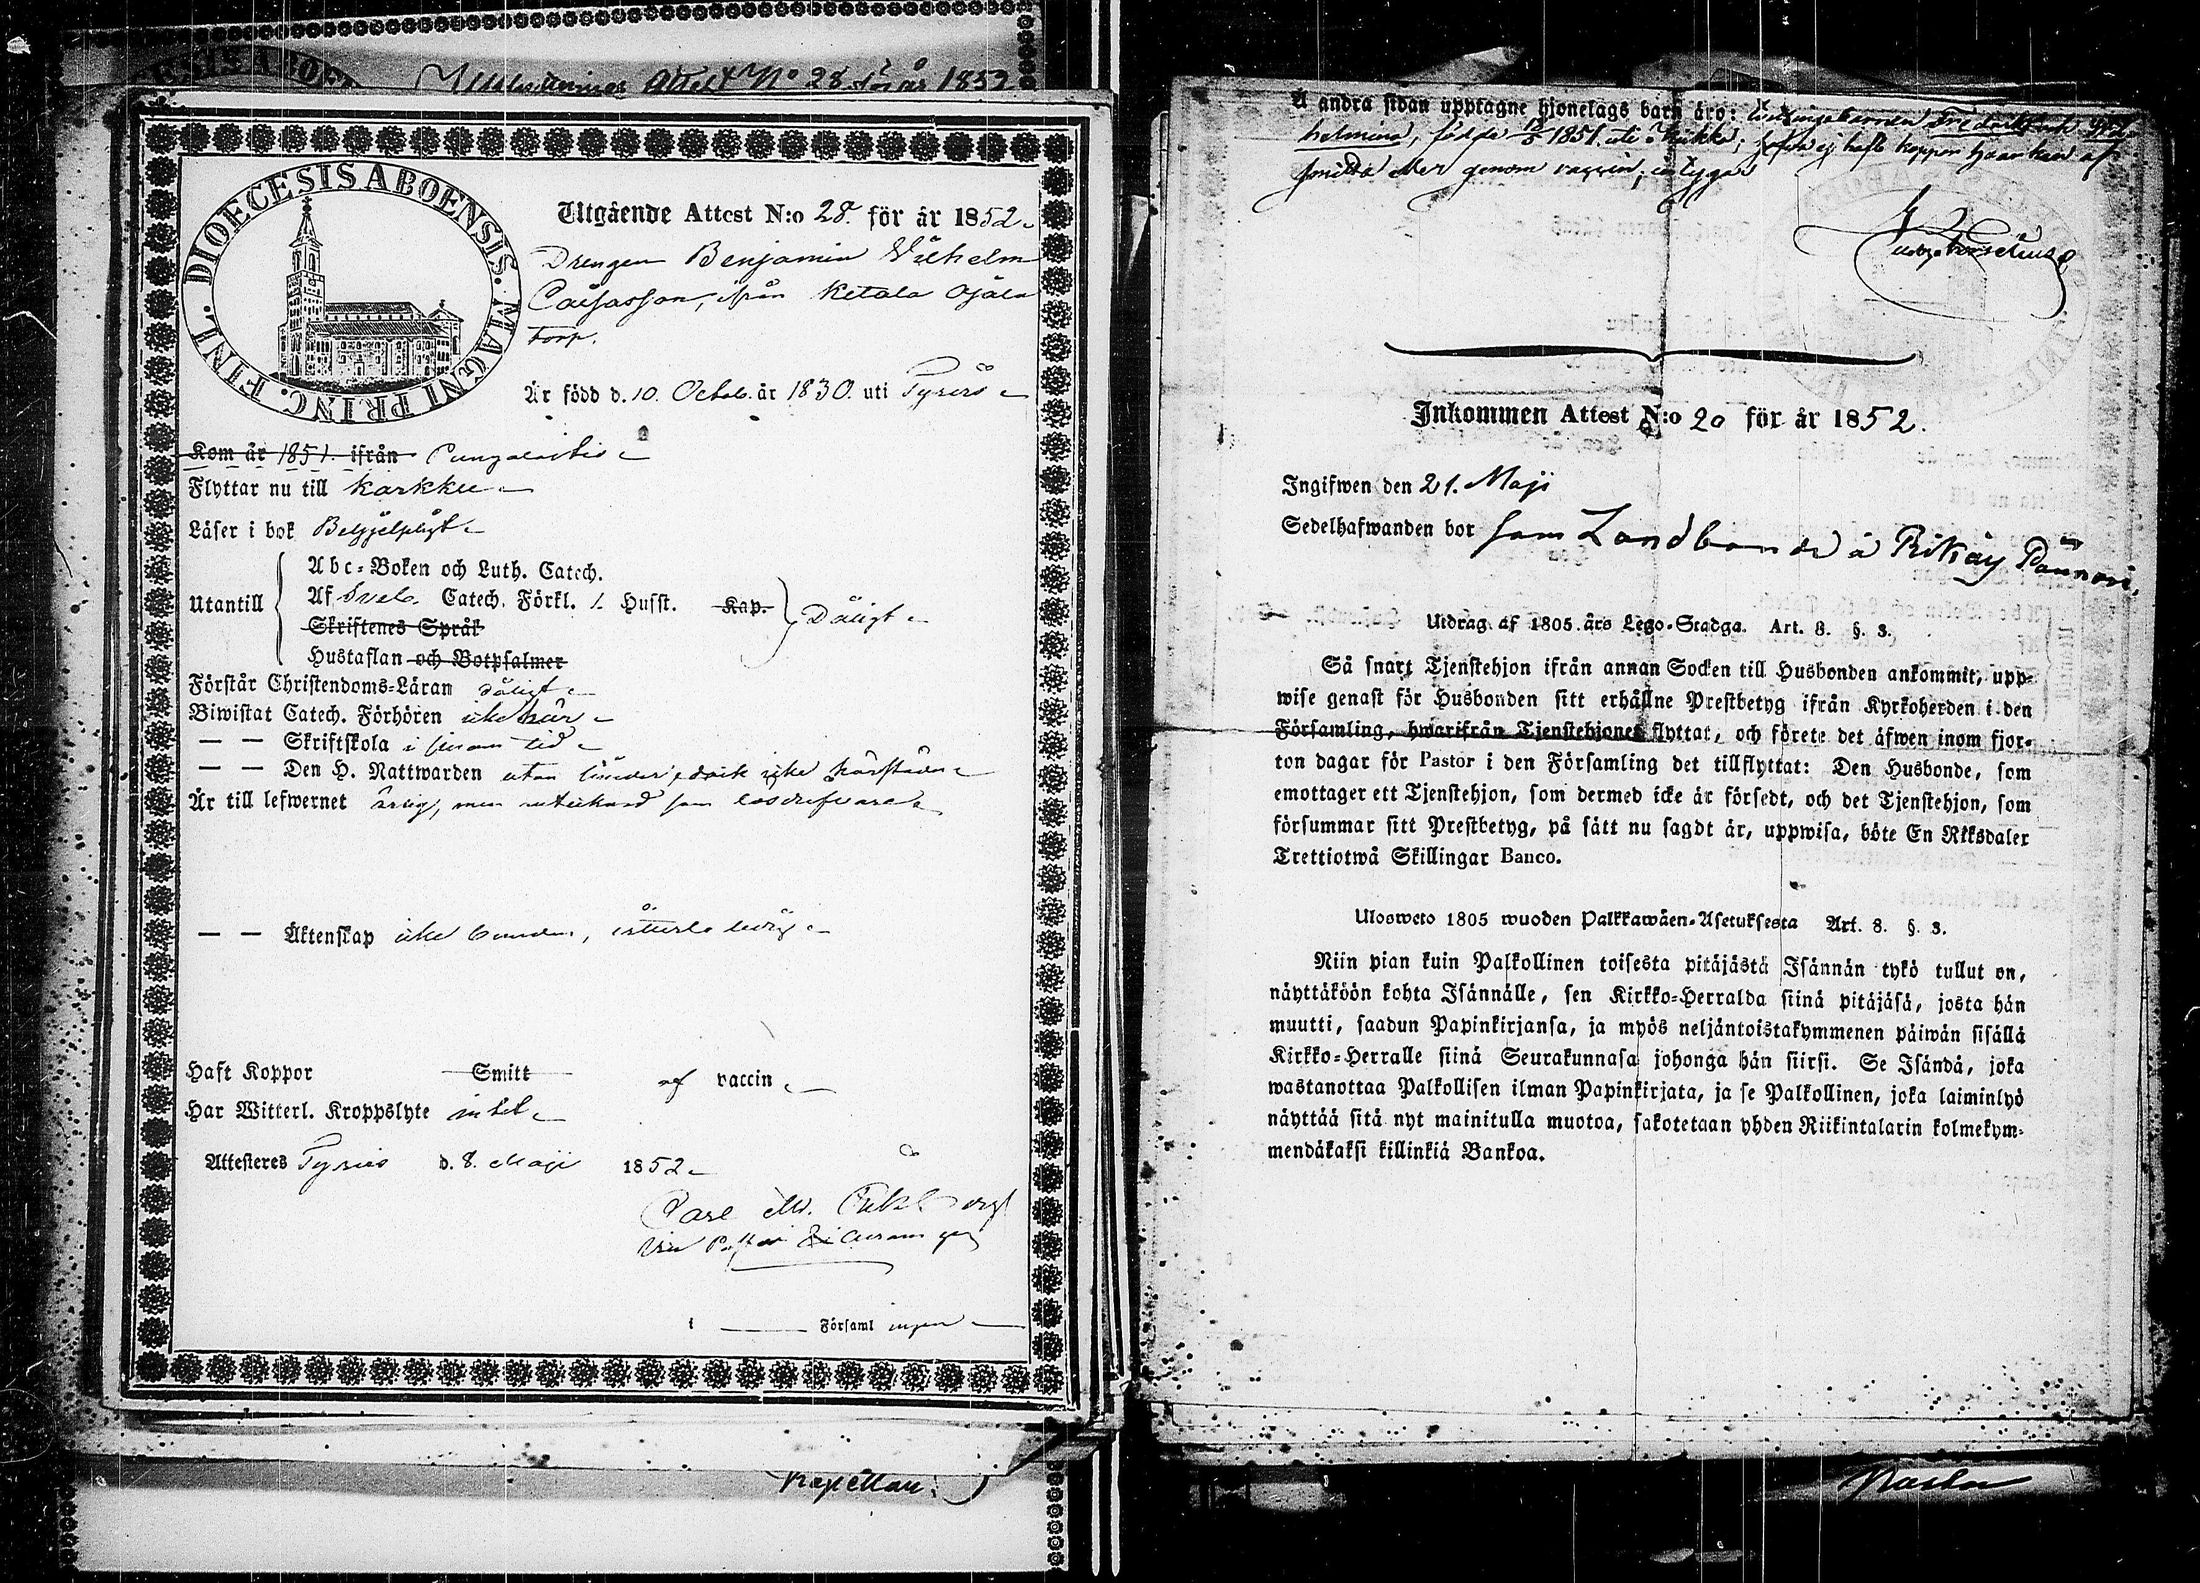 Attest N:o 28 för år 1852
DIOECESIS ABOENSIS. MAGNI PRINC. FINL.
Utgående Attest N:o 28. för år 1852
Drengen Benjamin Wilhelm
ifrån Ketala Ojala
torp.
Är född d. 10. Octob. år 1830. uti Tyrvis
Kom år 1851. ifrån
Flyttar nu till Karkku
Läser i bok
Utantill
Abc-Boken och Luth. Catech.
Af Sveb. Catech. Förkl. 1. Husst. Kap.
Skriftenes Språk
Hustaflan och Botpsalmer
Dåligt
Förstår Christendoms-Läran dåligt
Biwistat Catech. Förhören icke här
— — Skriftskola i sinom tid
— — Den H. Nattwarden utan dock icke härstädes
Är till lefwernet ärlig, men
— — Äktenskap icke bunden, ledig
Haft Koppor Smitt af vaccin
Har Witterl. Kroppslyte intet
Attesteres Tyrvis d. 8. Maji 1852
Carl M.
i Församl ingen
Kapellan.
Å andra sidan upptagne hjonelags barn äro: tvillingabarnen
helmina, födde 1851. uti
genom vaccin; intygar
Inkommen Attest N:o 20 för år 1852.
Ingifwen den 21. Maji
Sedelhafwanden bor som Landbonde å
Utdrag af 1805 års Lego-Stadga. Art. 8. §. 3.
Så snart Tjenstehjon ifrån annan Socken till Husbonden ankommit, upp-
wise genast för Husbonden sitt erhållne Prestbetyg ifrån Kyrkoherden i den
Församling, hwarifrån Tjenstehjonet flyttat, och förete det äfwen inom fjor-
ton dagar för Pastor i den Församling det tillflyttat: Den Husbonde, som
emottager ett Tjenstehjon, som dermed icke är försedt, och det Tjenstehjon, som
försummar sitt Prestbetyg, på sätt nu sagdt är, uppwisa, böte En Riksdaler
Trettiotwå Skillingar Banco.
Ulosweto 1805 wuoden Palkkawäen-Asetuksesta Art. 8. §. 3.
Niin pian kuin Palkollinen toisesta pitäjästä Isännän tykö tullut on,
näyttäköön kohta Isännälle, sen Kirkko-Herralda siinä pitäjäsä, josta hän
muutti, saadun Papinkirjansa, ja myös neljäntoistakymmenen päiwän sisällä
Kirkko-Herralle siinä Seurakunnasa johonga hän siirsi. Se Isändä, joka
wastanottaa Palkollisen ilman Papinkirjata, ja se Palkollinen, joka laiminlyö
näyttää sitä nyt mainitulla muotoa, sakotetaan yhden Riikintalarin kolmekym-
mendäkaksi killinkiä Bankoa.
Pastor